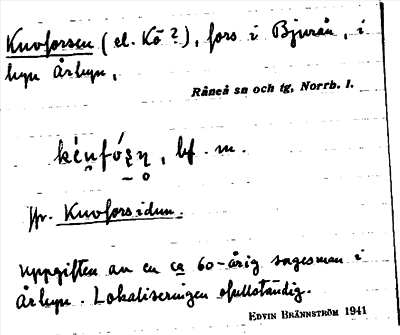 Kuvforsen (el. Kö?), fors i Bjurån, i
byn Årbyn,
Råneå sn och tg, Norrb. l.
bf. m.
Jfr. Kuvforsidun.
Uppgiften av en ca 60-årig sagesman i
Årbyn. Lokaliseringen ofullständig.
EDVIN BRÄNNSTRÖM 1941